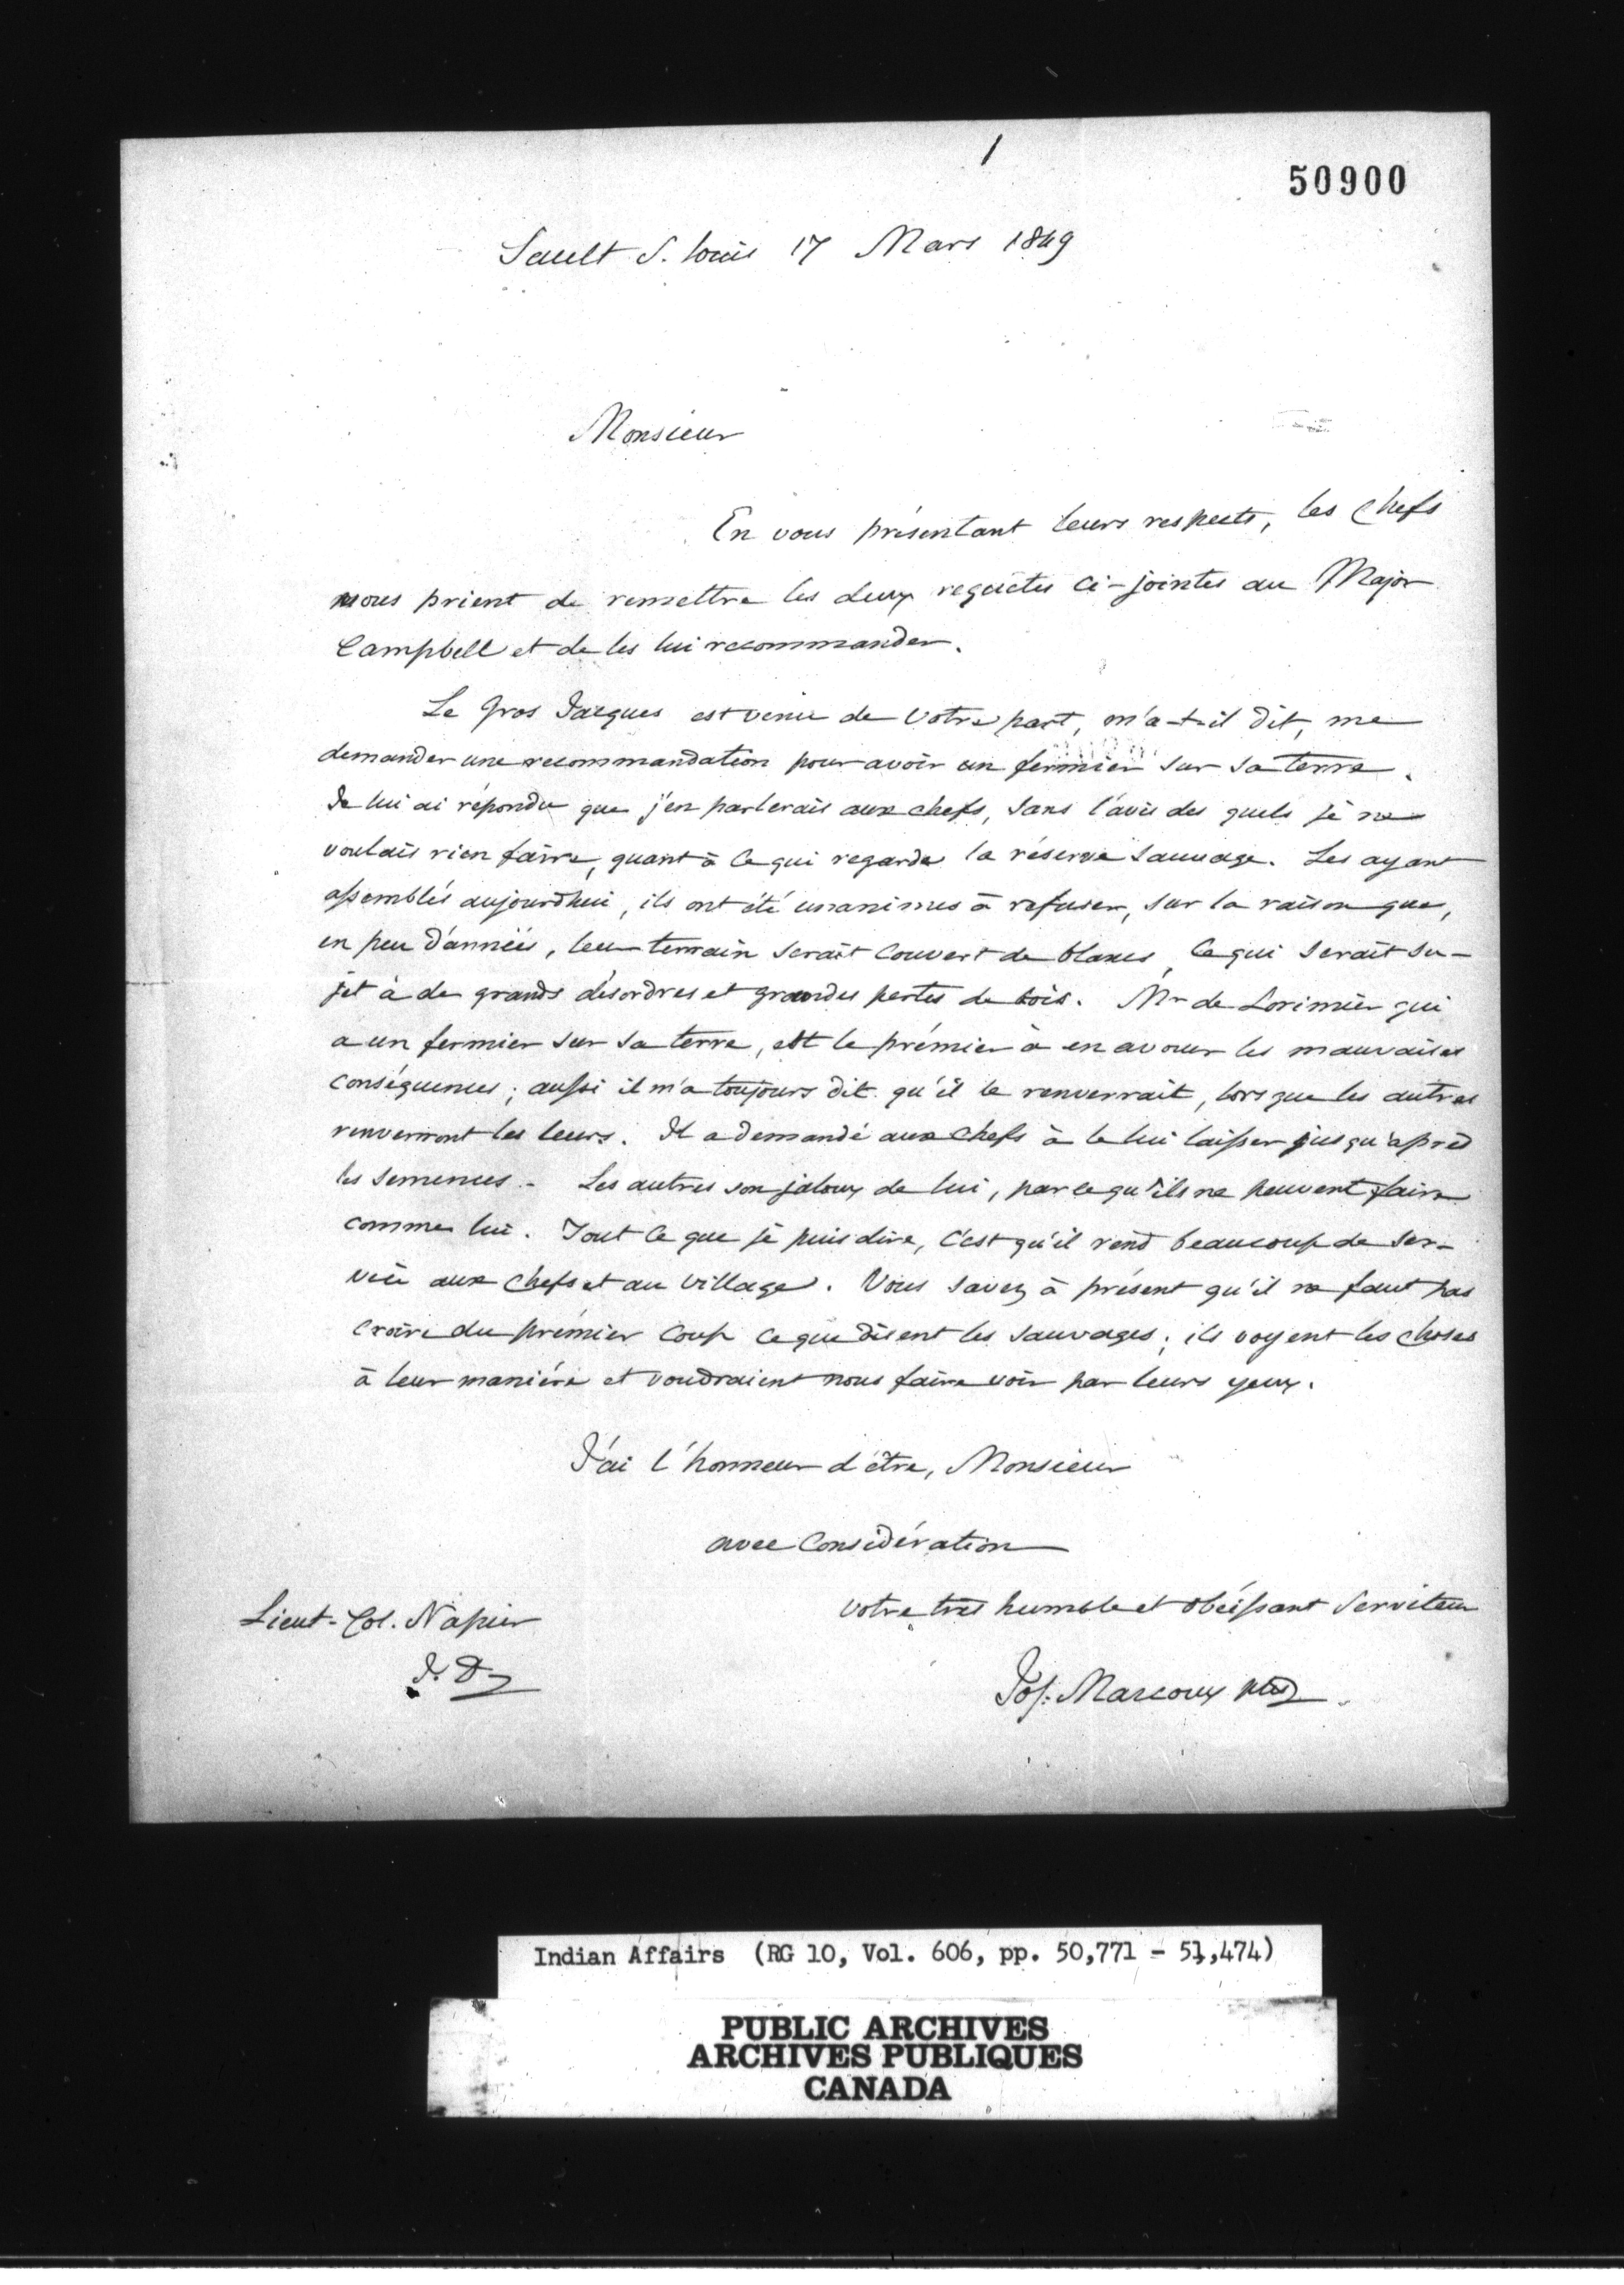 1
50900
Sault S. Louis 17 Mars 1849
Monsieur
En vous présentant leurs respects, les Chefs
nous prient de remettre les deux requêtes ci-jointes au Major
Campbell et de les lui recommander.
Le Gros Jacques est venu de votre part, m'a-t-il dit, me
demander une recommandation pour avoir un fermier sur sa terre.
Je lui ai répondu que j'en parlerais aux chefs, sans l'avis des quels je ne
voulais rien faire, quant à ce qui regarde la réserve sauvage. Les ayant
assemblés aujourdhui, ils ont été unanimes à refuser, sur la raison que,
en peu d'années, leur terrain serait couvert de blancs, ce qui serait su-
jet à de grands désordres et grandes pertes de bois. Mr de Lorimier qui
a un fermier sur sa terre, est le prémier à en avouer les mauvaises
conséquences; aussi il m'a toujours dit qu'il le renverrait, lorsque les autres
renverront les leurs. Il a demandé aux chefs à le lui laisser jusqu'après
les semences. - Les autres son jaloux de lui, parce qu'ils ne peuvent faire
comme lui. Tout ce que je puis dire, c'est qu'il rend beaucoup de ser-
vice aux chefs et au village. Vous savez à présent qu'il ne faut pas
croire du prémier coup ce que disent les sauvages; ils voyent les choses
à leur manière et voudraient nous faire voir par leurs yeux.
J'ai l'honneur d'être, Monsieur
avec considération
votre très humble et obéissant serviteur
Lieut-Col. Napier
Jos. Marcoux ptre
Indian Affairs (RG 10, Vol. 606, pp. 50,771 - 51,474)
PUBLIC ARCHIVES
ARCHIVES PUBLIQUES
CANADA